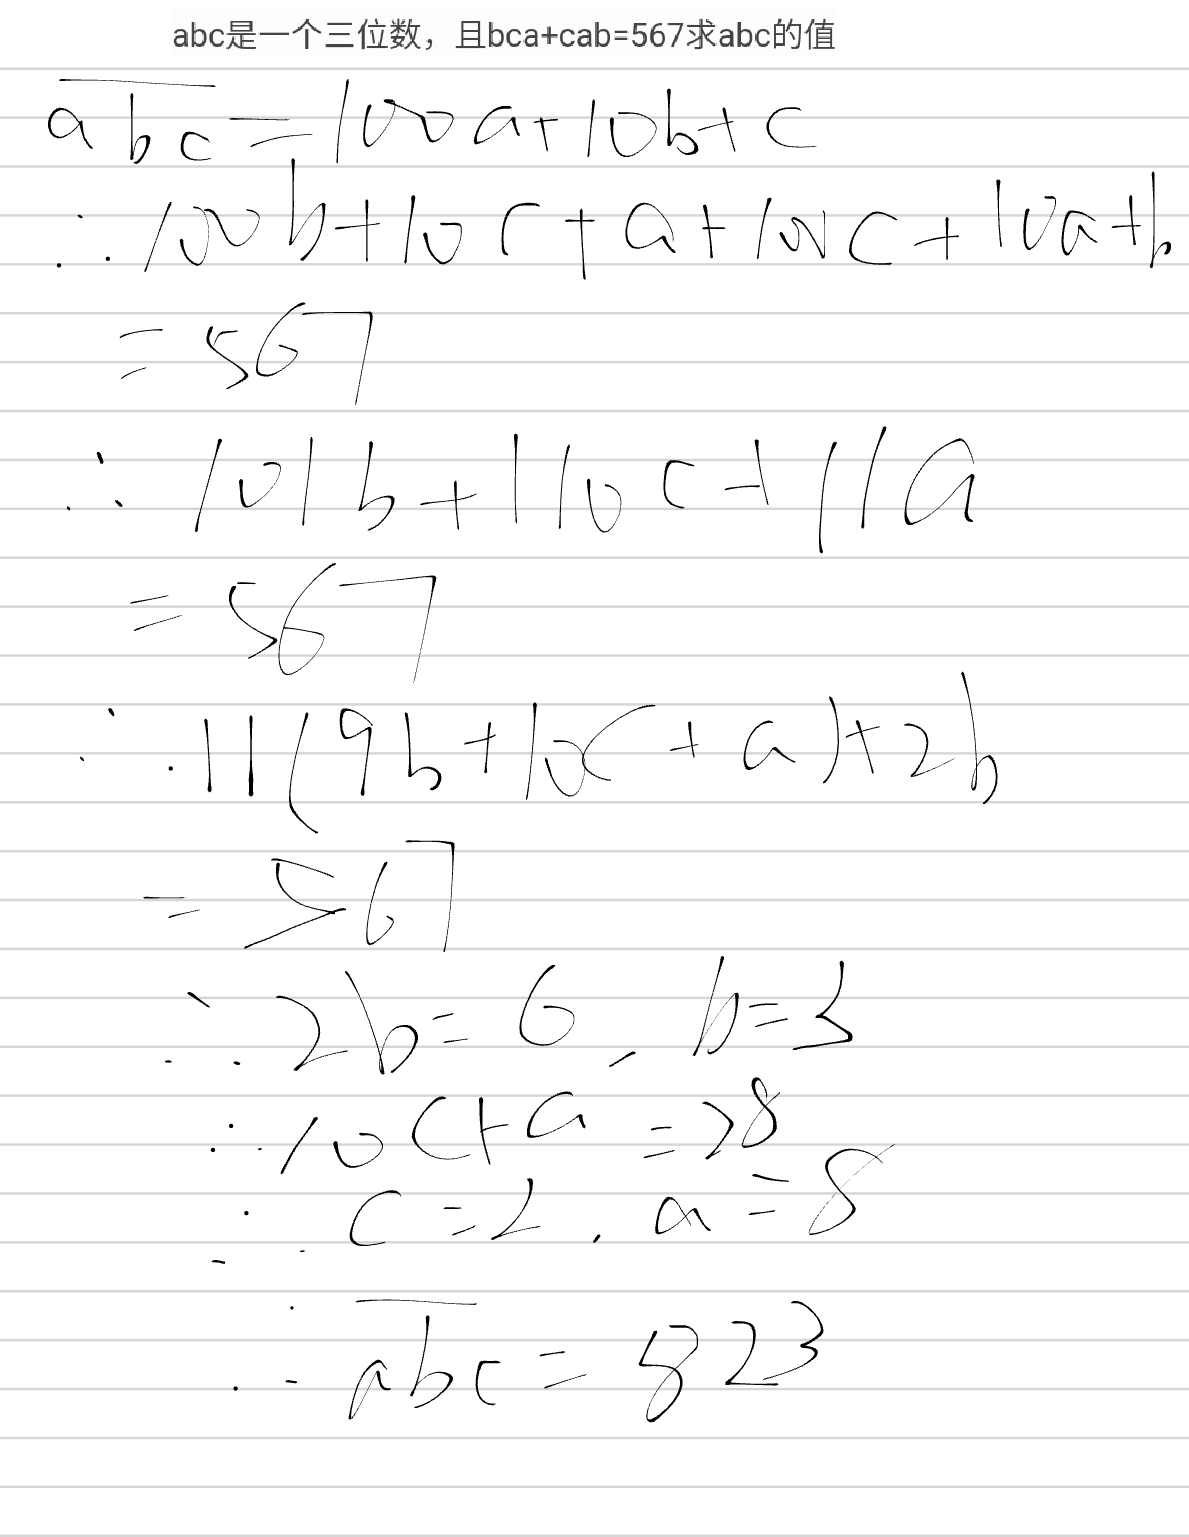 abc是一个三位数，且bca+cab=567求abc的值
abc=100a+10b+c
∴100b+10c+a+100c+10a+b
=567
∴101b+110c+11a
=567
∴11(9b+10c+a)+2b
=567
∴2b=6,b=3
∴10c+a=28
∴c=2,a=8
∴abc=823